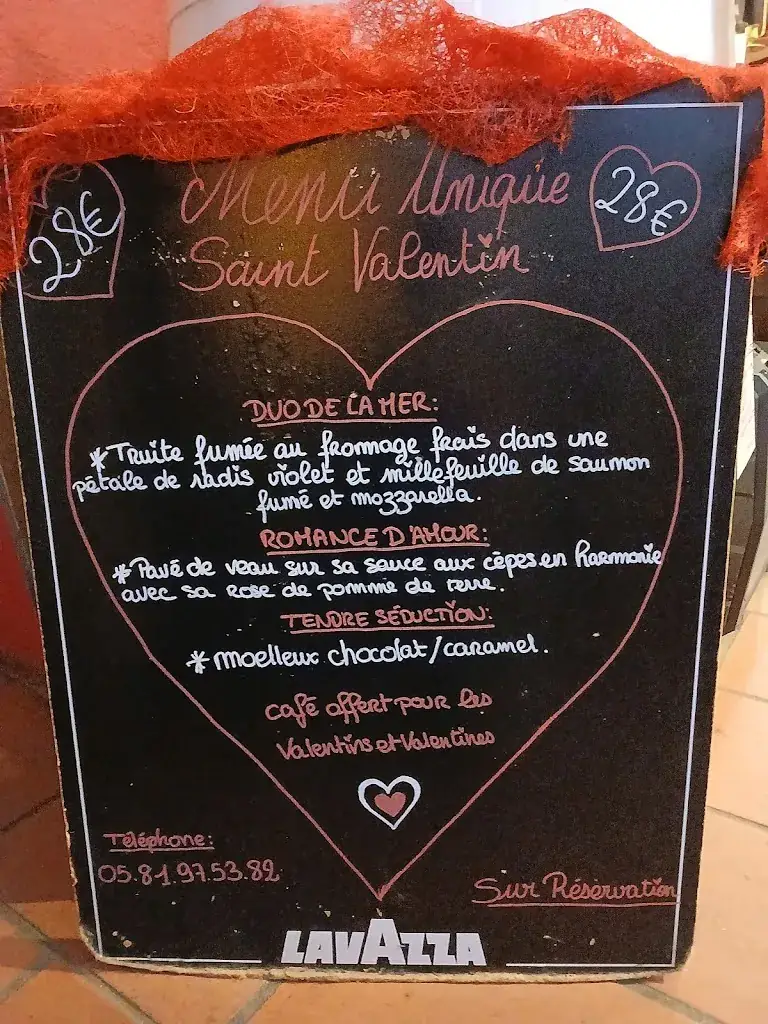 28€
Menu Unique
28€
Saint Valentin
DUO DE LA MER:
*Truite fumée au fromage frais dans une
pétale de radis violet et millefeuille de saumon
fumé et mozzarella.
ROMANCE D'AMOUR:
*Pavé de veau sur sa sauce aux cèpes en harmonie
avec sa rose de pomme de terre.
TENDRE SÉDUCTION:
*moelleux chocolat/caramel.
café offert pour les
Valentins et Valentines
Téléphone:
05.81.97.53.82
Sur Réservation
LAVAZZA